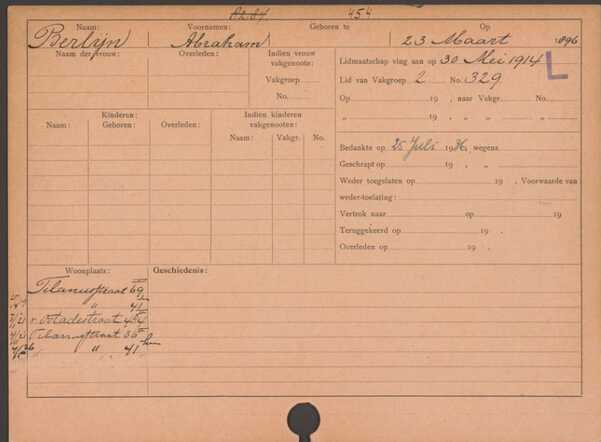 454
Naam: Voornamen: Geboren te Op
Berlijn Abraham 23 Maart 1896
Naam der vrouw: Overleden: Indien vrouw vakgenoote:
Vakgroep
No.
Lidmaatschap ving aan op 30 Mei 1914 L
Lid van Vakgroep 2 No. 329
Op 19 , naar Vakgr. No.
„ 19 , „ „ „
Kinderen:
Naam: Geboren: Overleden:
Indien kinderen vakgenooten:
Naam: Vakgr. No.
Bedankte op 25 Juli 1936, wegens
Geschrapt op 19 , „
Weder toegelaten op 19 , Voorwaarde van
weder-toelating:
Vertrok naar op 19
Teruggekeerd op 19 .
Overleden op 19 .
Woonplaats: Geschiedenis:
Tilanusstraat 69
„ 41
v. Ostadestraat 454
Tilanusstraat 36
„ 41